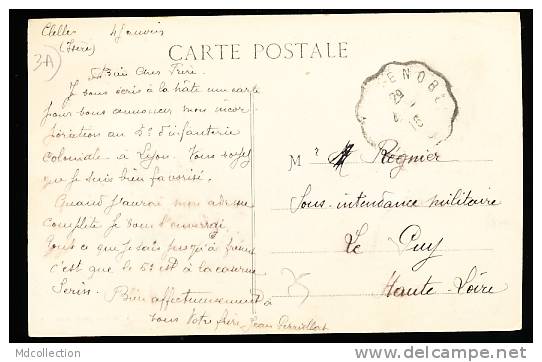 Clelles
(Isère)
3A
4 Janvier
CARTE POSTALE
Bien Cher Frère.
Je vous écris à la hâte une carte
pour vous annoncer mon incor
poration au 5e d'infanterie
coloniale à Lyon. Vous voyez
que je suis bien favorisé.
Quand j'aurai mon adresse
complete je vous l'enverrai
Tout ce que je sais jusqu'à
c'est que le 5e est à la caserne
Serin. Bien affectueusement à
vous Votre frère Jean
M Regnier
Sous-intendance militaire
Le Puy
Haute-Loire
29
MDcollection
delcampe.net